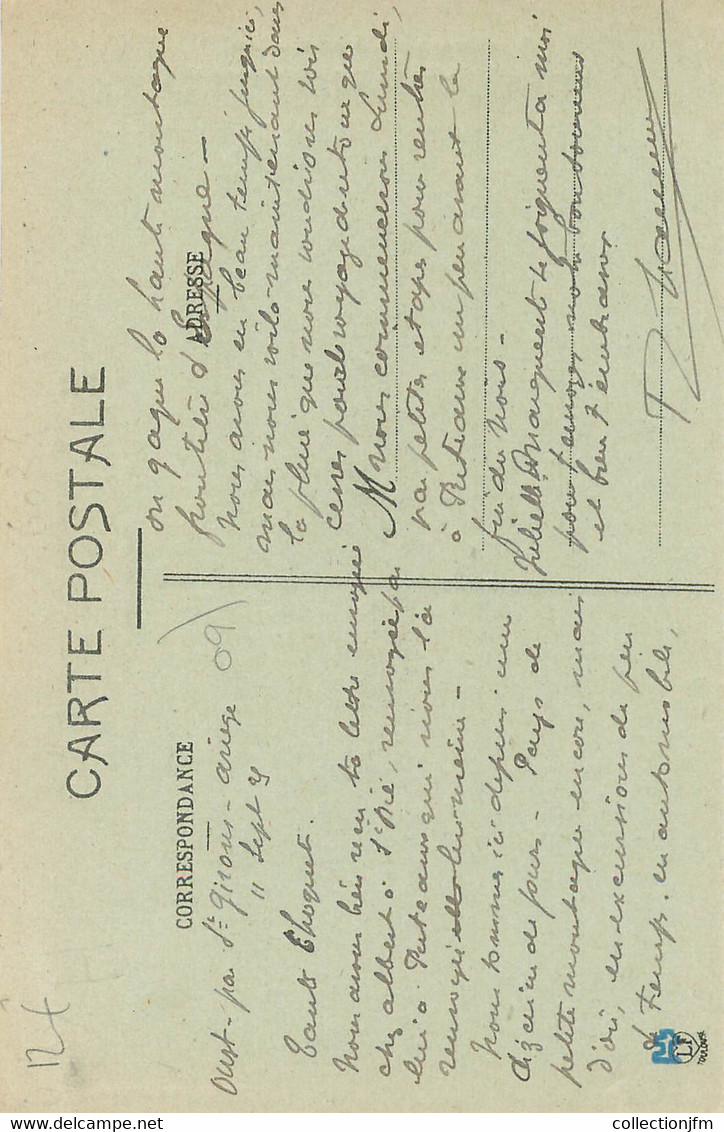 CARTE POSTALE
CORRESPONDANCE
ADRESSE
12f
09
Oust - par St Girons - ariège
11 Sept
Tante Choquet.
Nous avons bien reçu ta lettre envoyée
chez albert à St Dié, renvoyée par
lui à Puteaux qui nous l'a
renvoyée
Nous sommes ici depuis une
dizaine de jours - Pays de
petite montagne encore, mais
d'où, en excursions de peu
de temps, en automobile,
on gagne la haute montagne
frontière d'Espagne -
Nous avons eu beau temps jusqu'ici,
mais nous voilà maintenant dans
la pluie que nous voudrions voir
cesser pour le voyage de retour que
M
nous commencerons Lundi,
par petites étapes pour rentrer
à Puteaux un peu avant la
fin du mois -
Juliette, Marguerite se joignent à moi
pour t'envoyer nos bons
et bien t'embrasser
LF
TOULOUSE
© collectionjfm